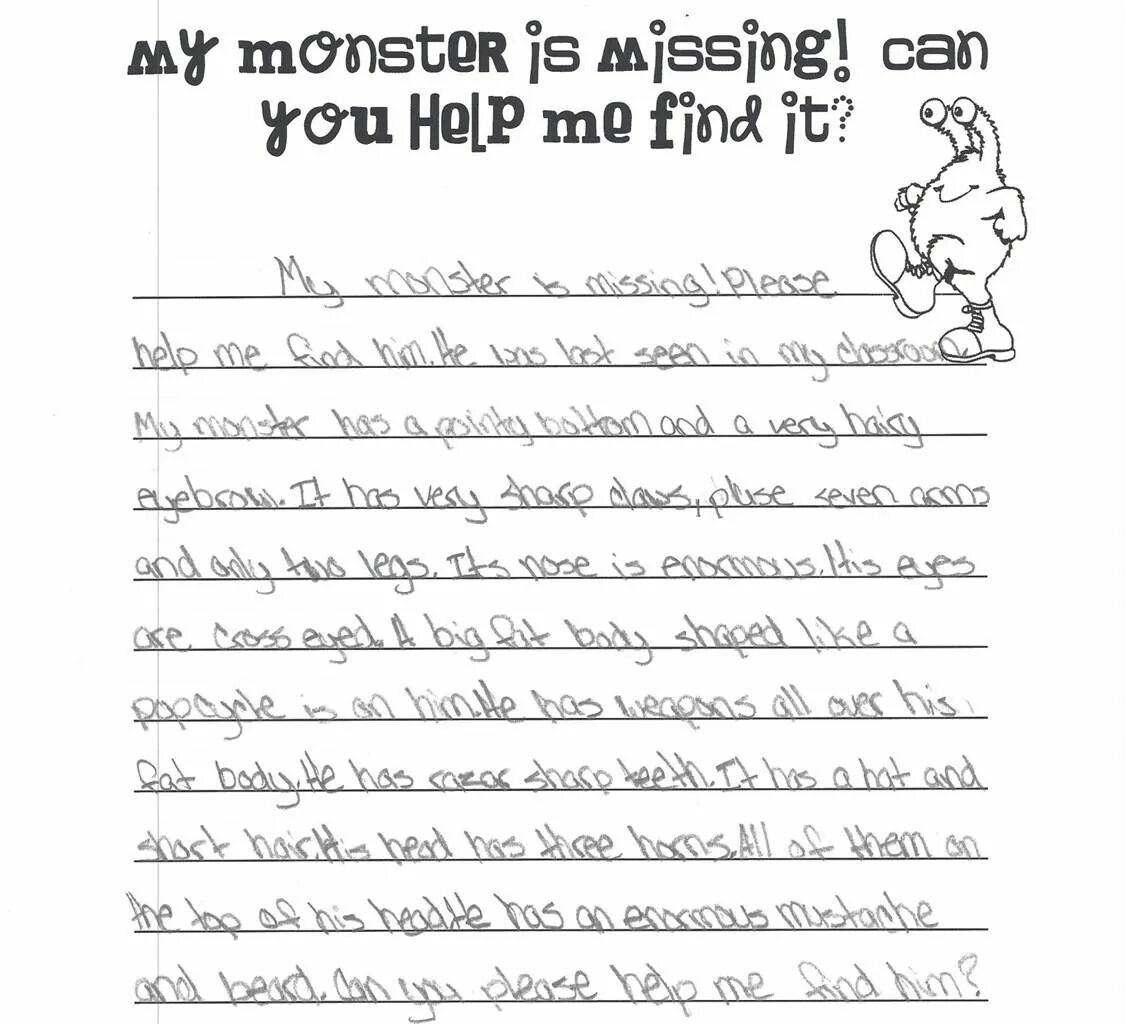 My monster is missing! Can
you help me find it?
My monster is missing! Please
help me find him. He was last seen in my classroom.
My monster has a pointy bottom and a very hairy
eyebrow. It has very sharp claws, pluse seven arms
and only two legs. Its nose is enormous. His eyes
are cross eyed. A big fat body shaped like a
popcycle is on him. He has weapons all over his
fat body. He has razor sharp teeth. It has a hat and
short hair. His head has three horns. All of them on
the top of his head. He has an enormous mustache
and beard. Can you please help me find him?